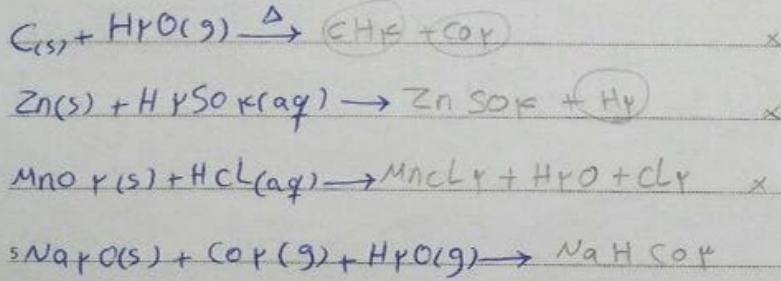 C(s) + H۲O(g) —Δ→ CH۴ + CO۲ ×
Zn(s) + H۲SO۴(aq) → ZnSO۴ + H۲ ×
MnO۲(s) + HCL(aq) → MnCL۲ + H۲O + CL۲ ×
5 Na۲O(s) + CO۲(g) + H۲O(g) → NaHCO۳